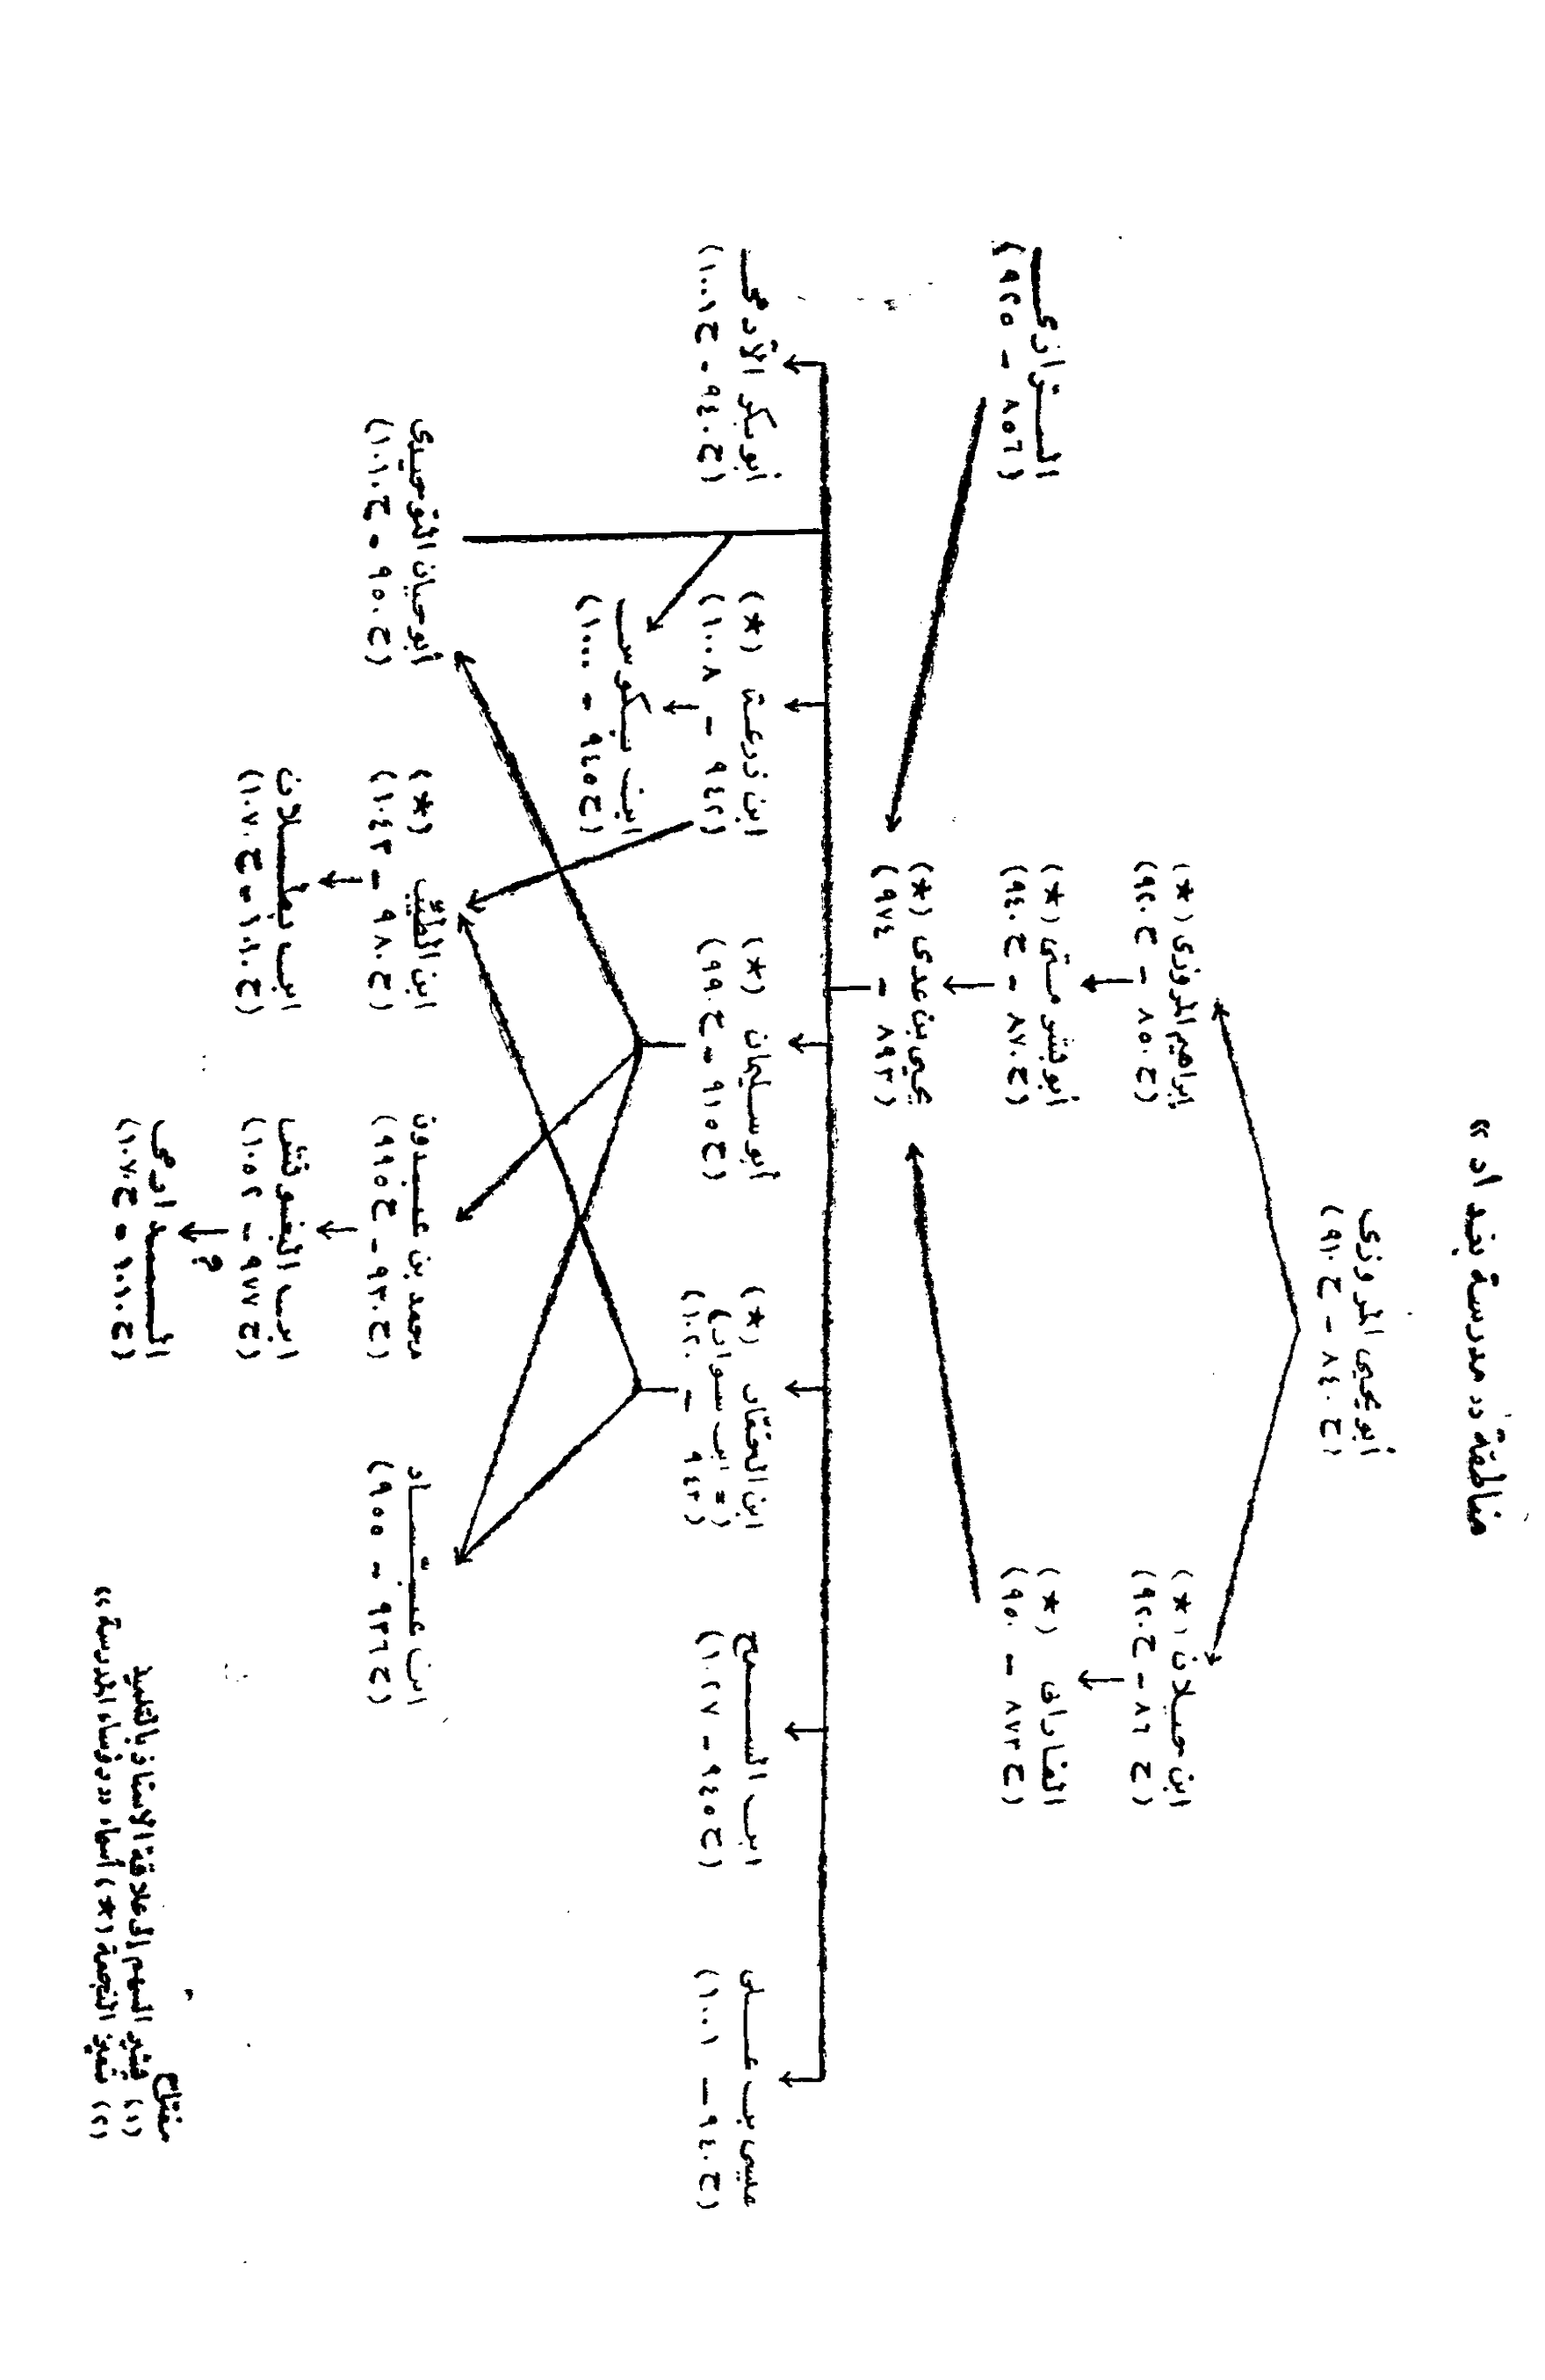 مناطقة «مدرسة بغداد»
أبو يحيى المروزى
(ح ٨٤٠ – ح ٩١٠)
ابن حيلان (*)
(ح ٨٦٠ – ح ٩٢٠)
إبراهيم المروزى (*)
(ح ٨٥٠ – ح ٩٢٠)
الفارابى (*)
(ح ٨٧٣ – ٩٥٠)
أبو بشر متى (*)
(ح ٨٧٠ – ح ٩٤٠)
الرازى
(٨٥٦ – ٩٢٥)
يحيى بن عدى (*)
(٨٩٣ – ٩٧٤)
عيسى بن على
(ح ٩٤٠ – ١٠٠١)
ابن السمح
(ح ٩٤٥ – ١٠٢٧)
ابن الخمّار (*)
(= ابن سوار)
(٩٤٣ – ١٠٢٠)
أبو سليمان (*)
(ح ٩١٥ – ح ٩٩٠)
ابن زرعة (*)
(٩٤٢ – ١٠٠٨)
أبو بكر الآدمى
(ح ٩٤٠ – ح ١٠٠١)
ابن بكوس
(ح ٩٤٥ – ١٠٠٠)
ابن عبّاد
(ح ٩٣٦ – ٩٥٥)
محمد بن عبدون
(ح ٩٣٠ – ح ٩٩٥)
ابن الطيّب (*)
(ح ٩٨٠ – ١٠٤٣)
أبو حيان التوحيدى
(ح ٩٥٠ – ح ١٠١٠)
ابن البغونش
(ح ٩٧٧ – ١٠٥٢)
ابن بطلان
(ح ١٠١٠ – ح ١٠٧٠)
؟
الدارمى
(ح ١٠١٠ – ح ١٠٧٠)
مفتاح
(١) يشير السهم إلى علاقة الأستاذ بالتلميذ
(٢) تميز النجمة (*) أسماء «رؤساء المدرسة»